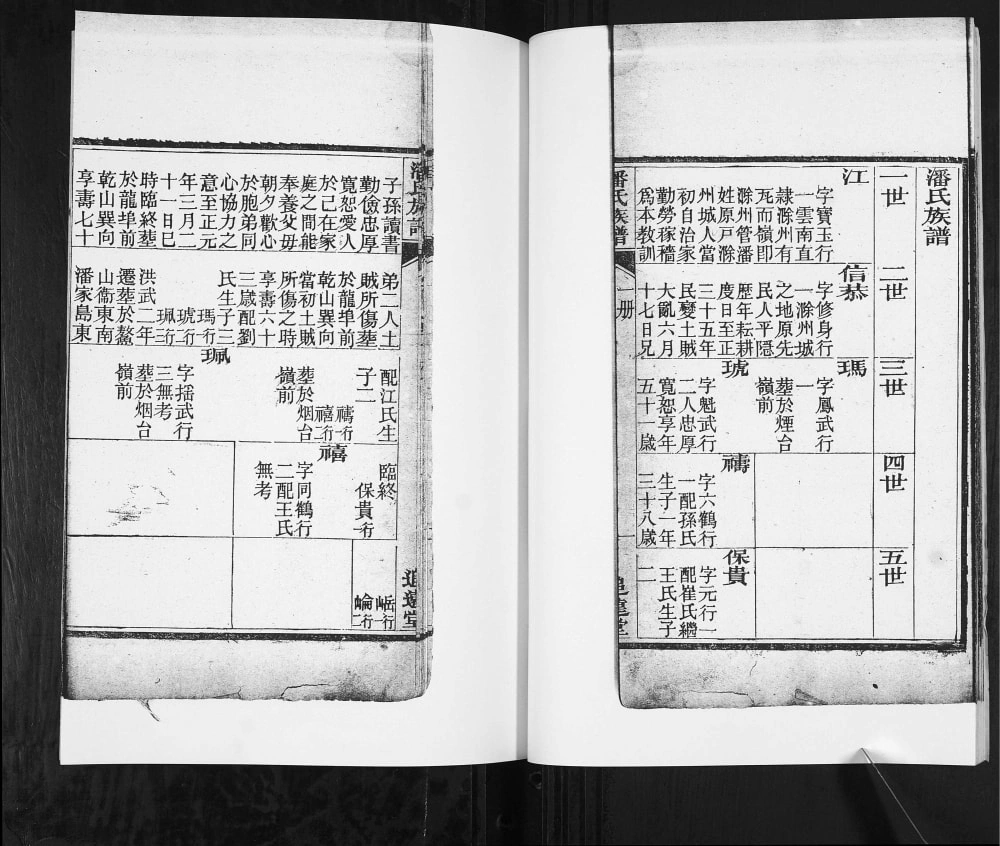 潘氏族譜
一世
二世
三世
四世
五世
江
字寶玉行
一雲南直
隸滁州有
死而嶺即
滁州管潘
姓原戸滁
州城人當
初自治家
勤勞稼穡
爲本教訓
信恭
字修身行
一滁州城
之地原先
民人平隱
歴年耘耕
度日至正
三十五年
民變土賊
大亂六月
十七日兄
瑪
字鳳武行
一
塟於煙台
嶺前
琥
字魁武行
二人忠厚
寛恕享年
五十一歳
禱
字六鶴行
一配孫氏
生子一年
三十八歳
保貴
字元行一
配崔氏繼
王氏生子
二
潘氏族譜
一册
追遠堂
潘氏族譜
追遠堂
子孫讀書
勤儉忠厚
寛恕愛人
於己在家
庭之間能
奉養父母
朝夕歡心
於胞弟同
心協力之
意至正元
年三月二
十一日巳
時臨終塟
於龍埠前
乾山巽向
享壽七十
弟二人土
賊所傷塟
於龍埠前
乾山巽向
當初土賊
所傷之時
享壽六十
三歳配劉
氏生子三
瑪行一
琥行二
珮行三
洪武二年
遷塟於鰲
山衞東南
潘家島東
配江氏生
子二
禱行一
禧行二
塟於烟台
嶺前
珮
字揺武行
三無考
塟於烟台
嶺前
臨終
保貴行一
禧
字同鶴行
二配王氏
無考
岳行一
崘行二